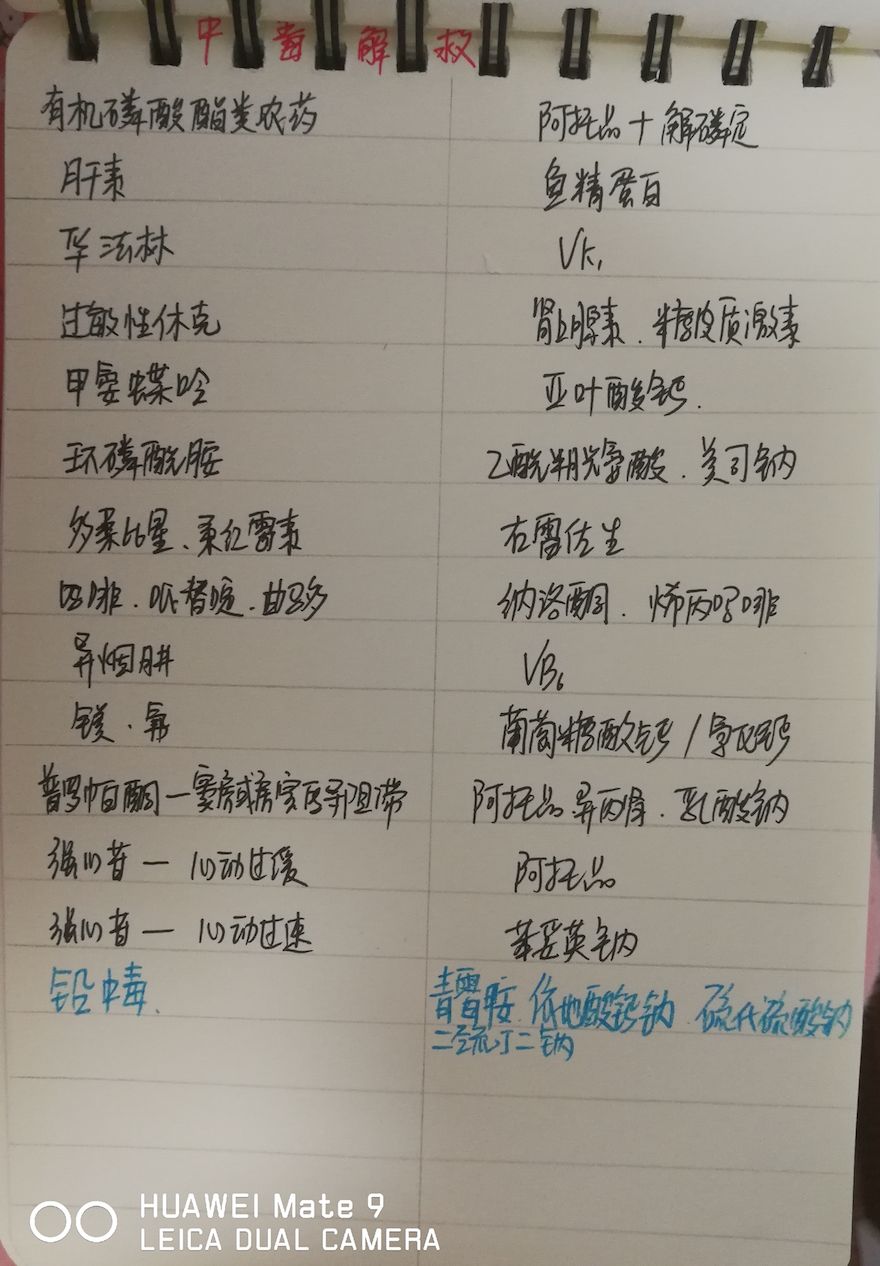 中毒解救
有机磷酸酯类农药 阿托品+解磷定
肝素 鱼精蛋白
华法林 VK₁
过敏性休克 肾上腺素、糖皮质激素
甲氨蝶呤 亚叶酸钙.
环磷酰胺 乙酰半胱氨酸、美司钠
多柔比星、柔红霉素 右雷佐生
吗啡、哌替啶、曲马多 纳洛酮、烯丙吗啡
异烟肼 VB₆
镁、氟 葡萄糖酸钙/氯化钙
普罗帕酮—窦房或房室传导阻滞 阿托品 异丙肾、乳酸钠
强心苷— 心动过缓 阿托品
强心苷— 心动过速 苯妥英钠
铅中毒、 青霉胺、依地酸钙钠、硫代硫酸钠
二巯丁二钠
HUAWEI Mate 9
LEICA DUAL CAMERA